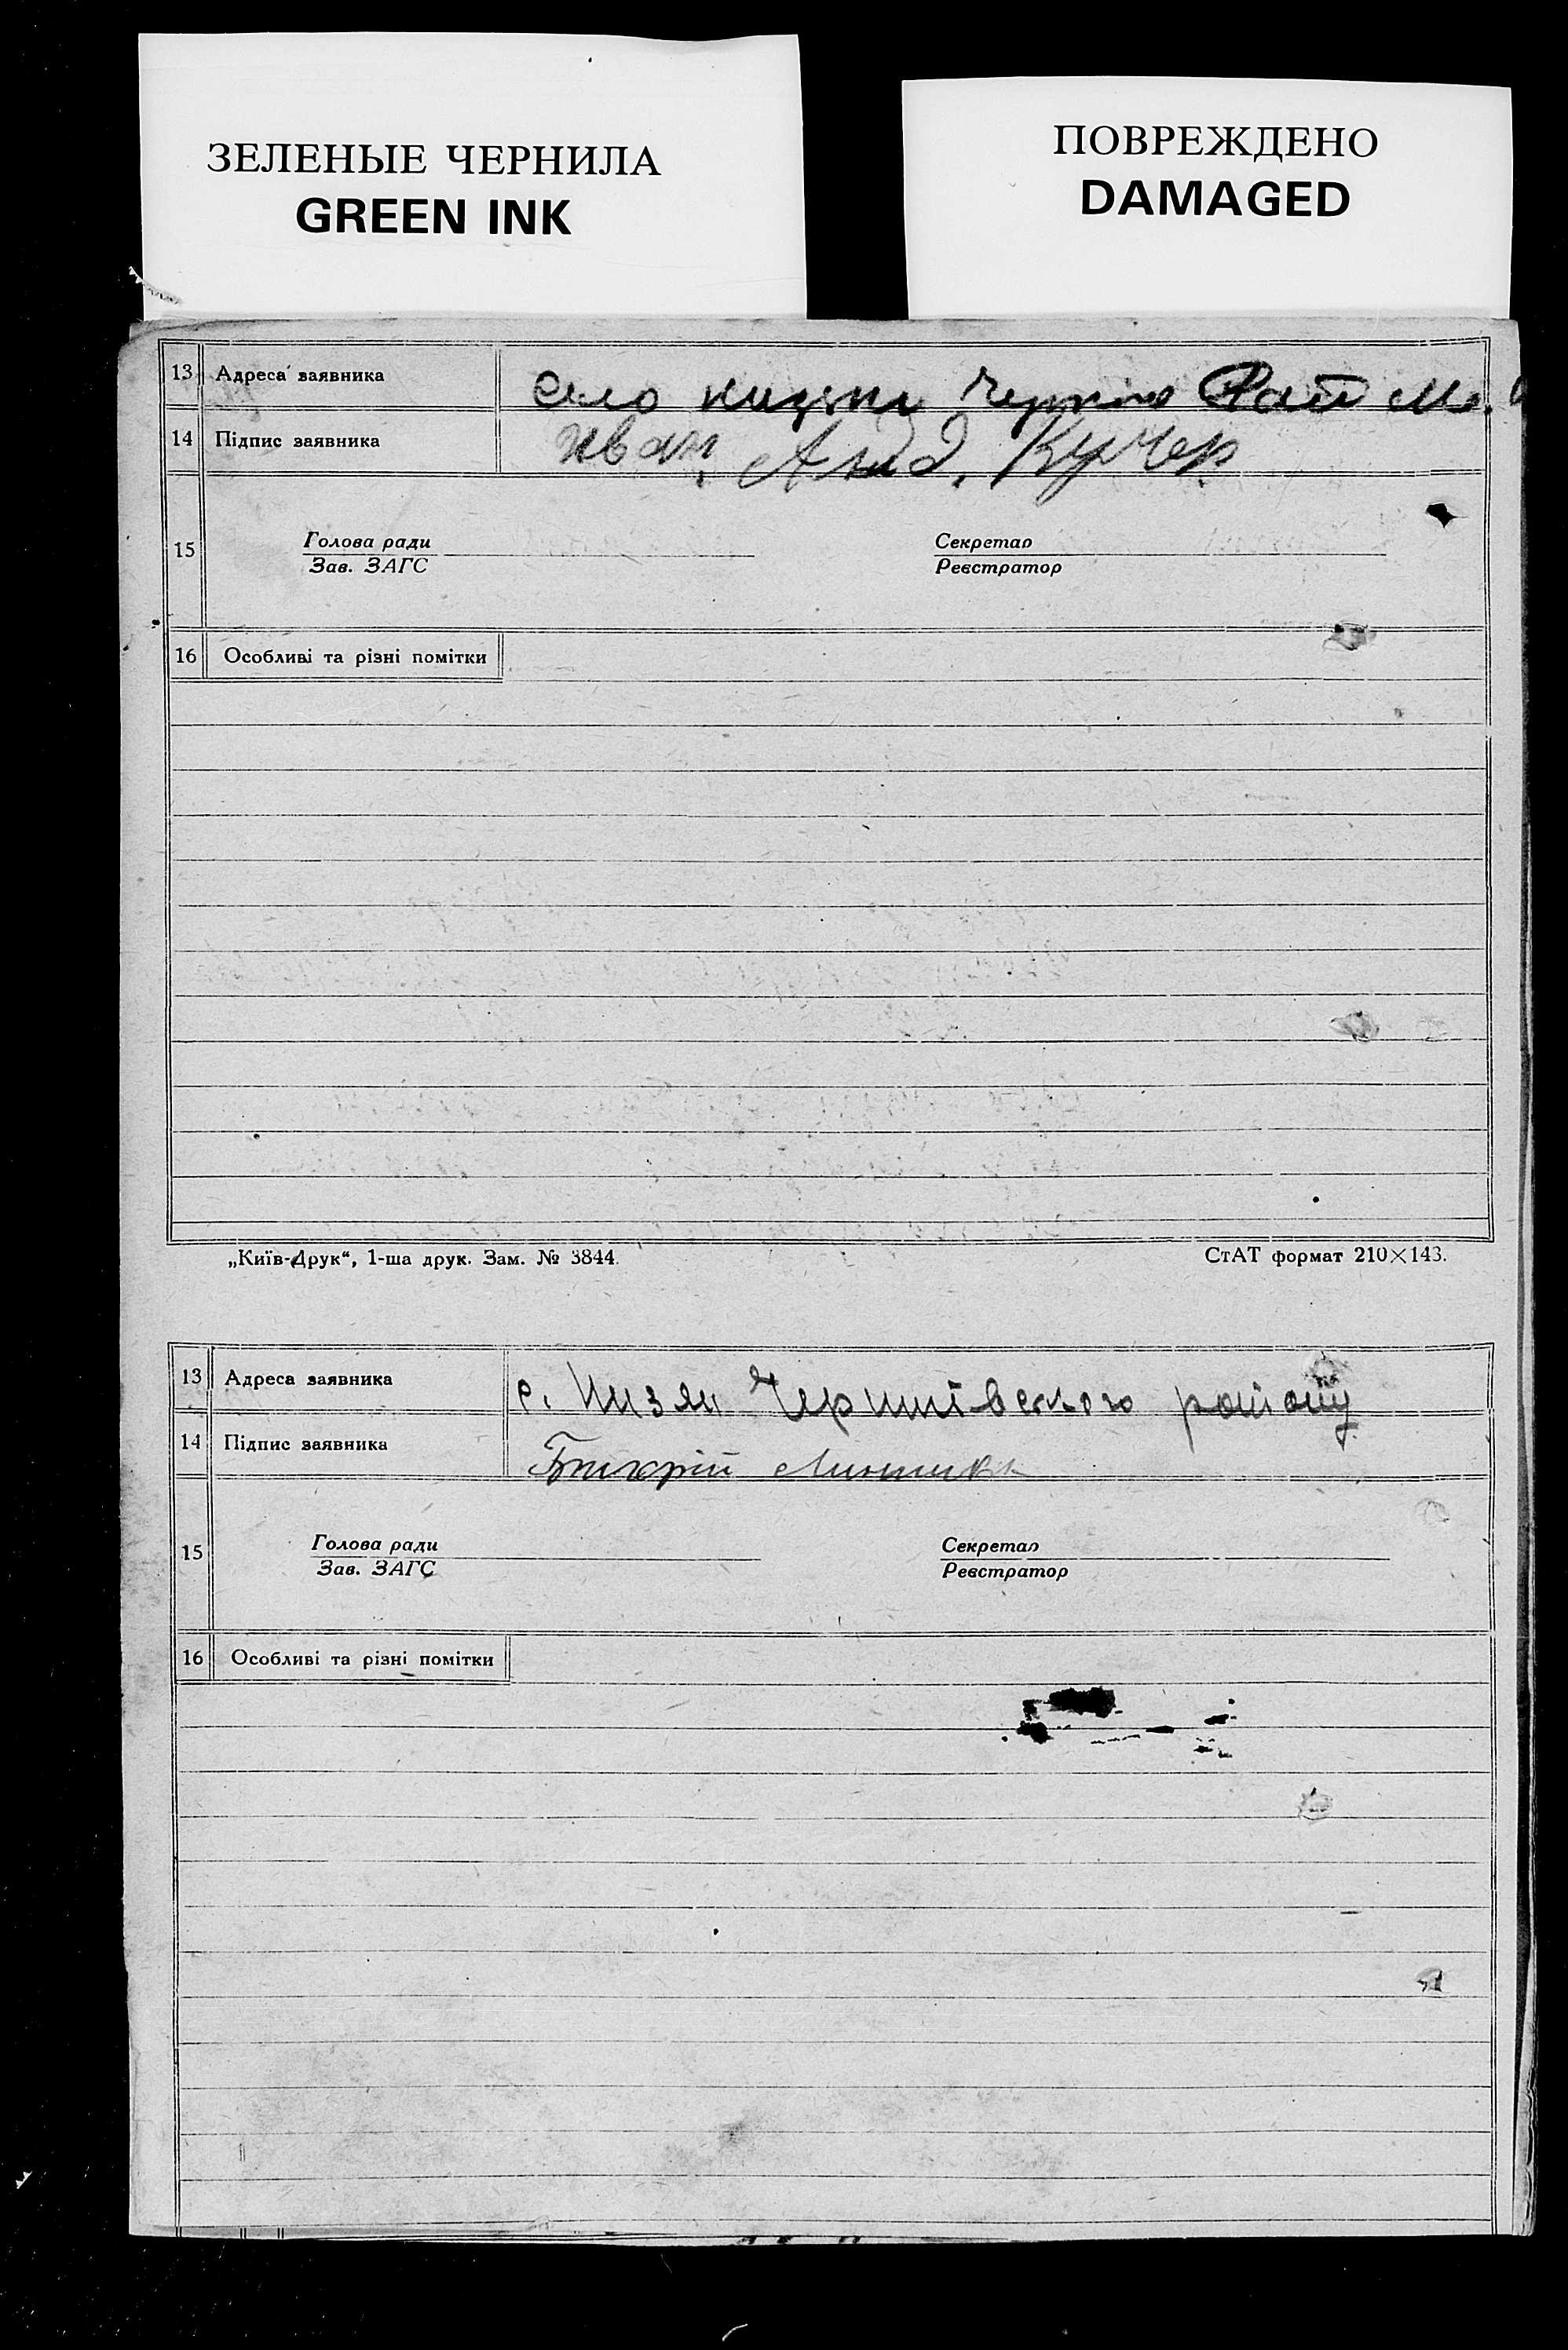 ЗЕЛЕНЫЕ ЧЕРНИЛА
GREEN INK
ПОВРЕЖДЕНО
DAMAGED
13 Адреса заявника село
14 Підпис заявника Иван Анд. Кучер
15 Голова ради Секретар
Зав. ЗАГС Реєстратор
16 Особливі та різні помітки
„Київ-Друк“, 1-ша друк. Зам. № 3844. СтАТ формат 210×143.
13 Адреса заявника с. Низян району
14 Підпис заявника Григорій
15 Голова ради Секретар
Зав. ЗАГС Реєстратор
16 Особливі та різні помітки